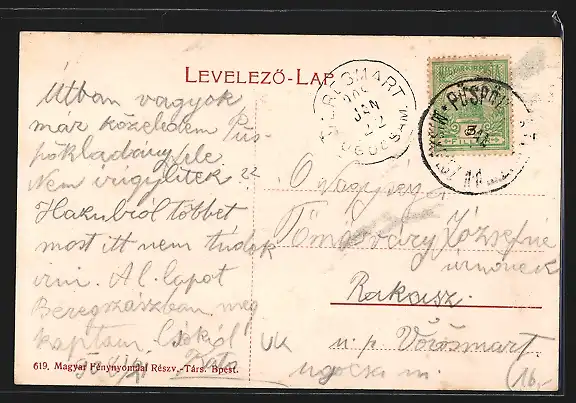 LEVELEZŐ-LAP
Útban vagyok
már közeledem Püs-
pökladány fele
Nem irigylitek??
Haknibrol többet
most itt nem tudok
irni. A l. lapot
Beregszászban meg
kaptam. Csókol
Kato
VEREGMART
JAN
22
UGOCSA
PÜSPÖK
FILLÉR
Ő Nagysága
Tomsváry Józsefné
úrnőnek
Rakasz.
u. p. Vörösmart
Ugocsa m.
16.-
619. Magyar Fénynyomdai Részv.-Társ. Bpest.